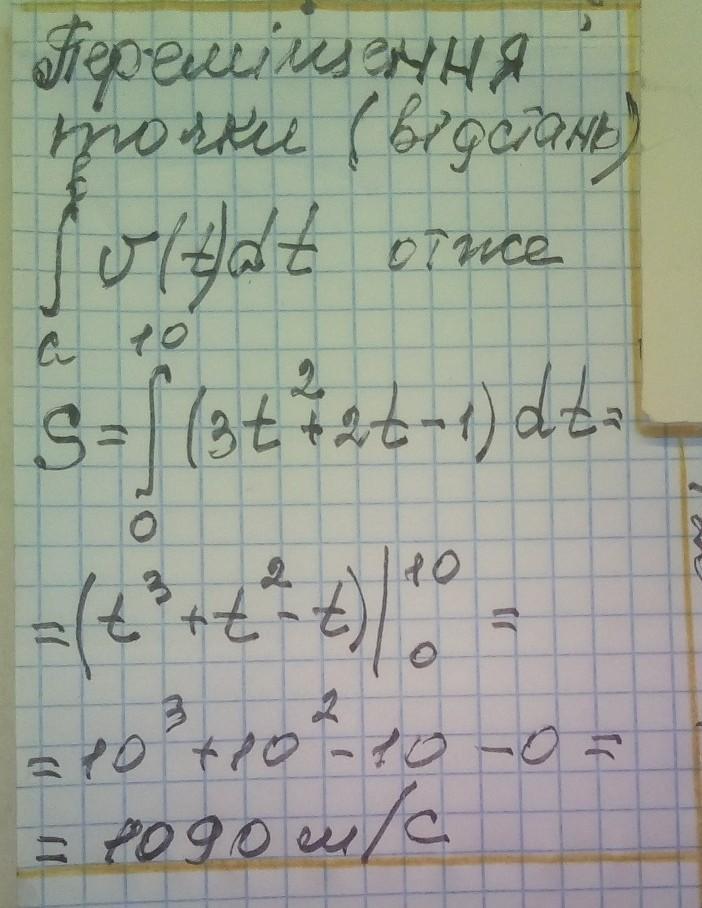 Переміщення
точки (відстань)
∫ₐᵇ v(t)dt отже
S = ∫₀¹⁰ (3t² + 2t - 1) dt =
= (t³ + t² - t) |₀¹⁰ =
= 10³ + 10² - 10 - 0 =
= 1090 м/с